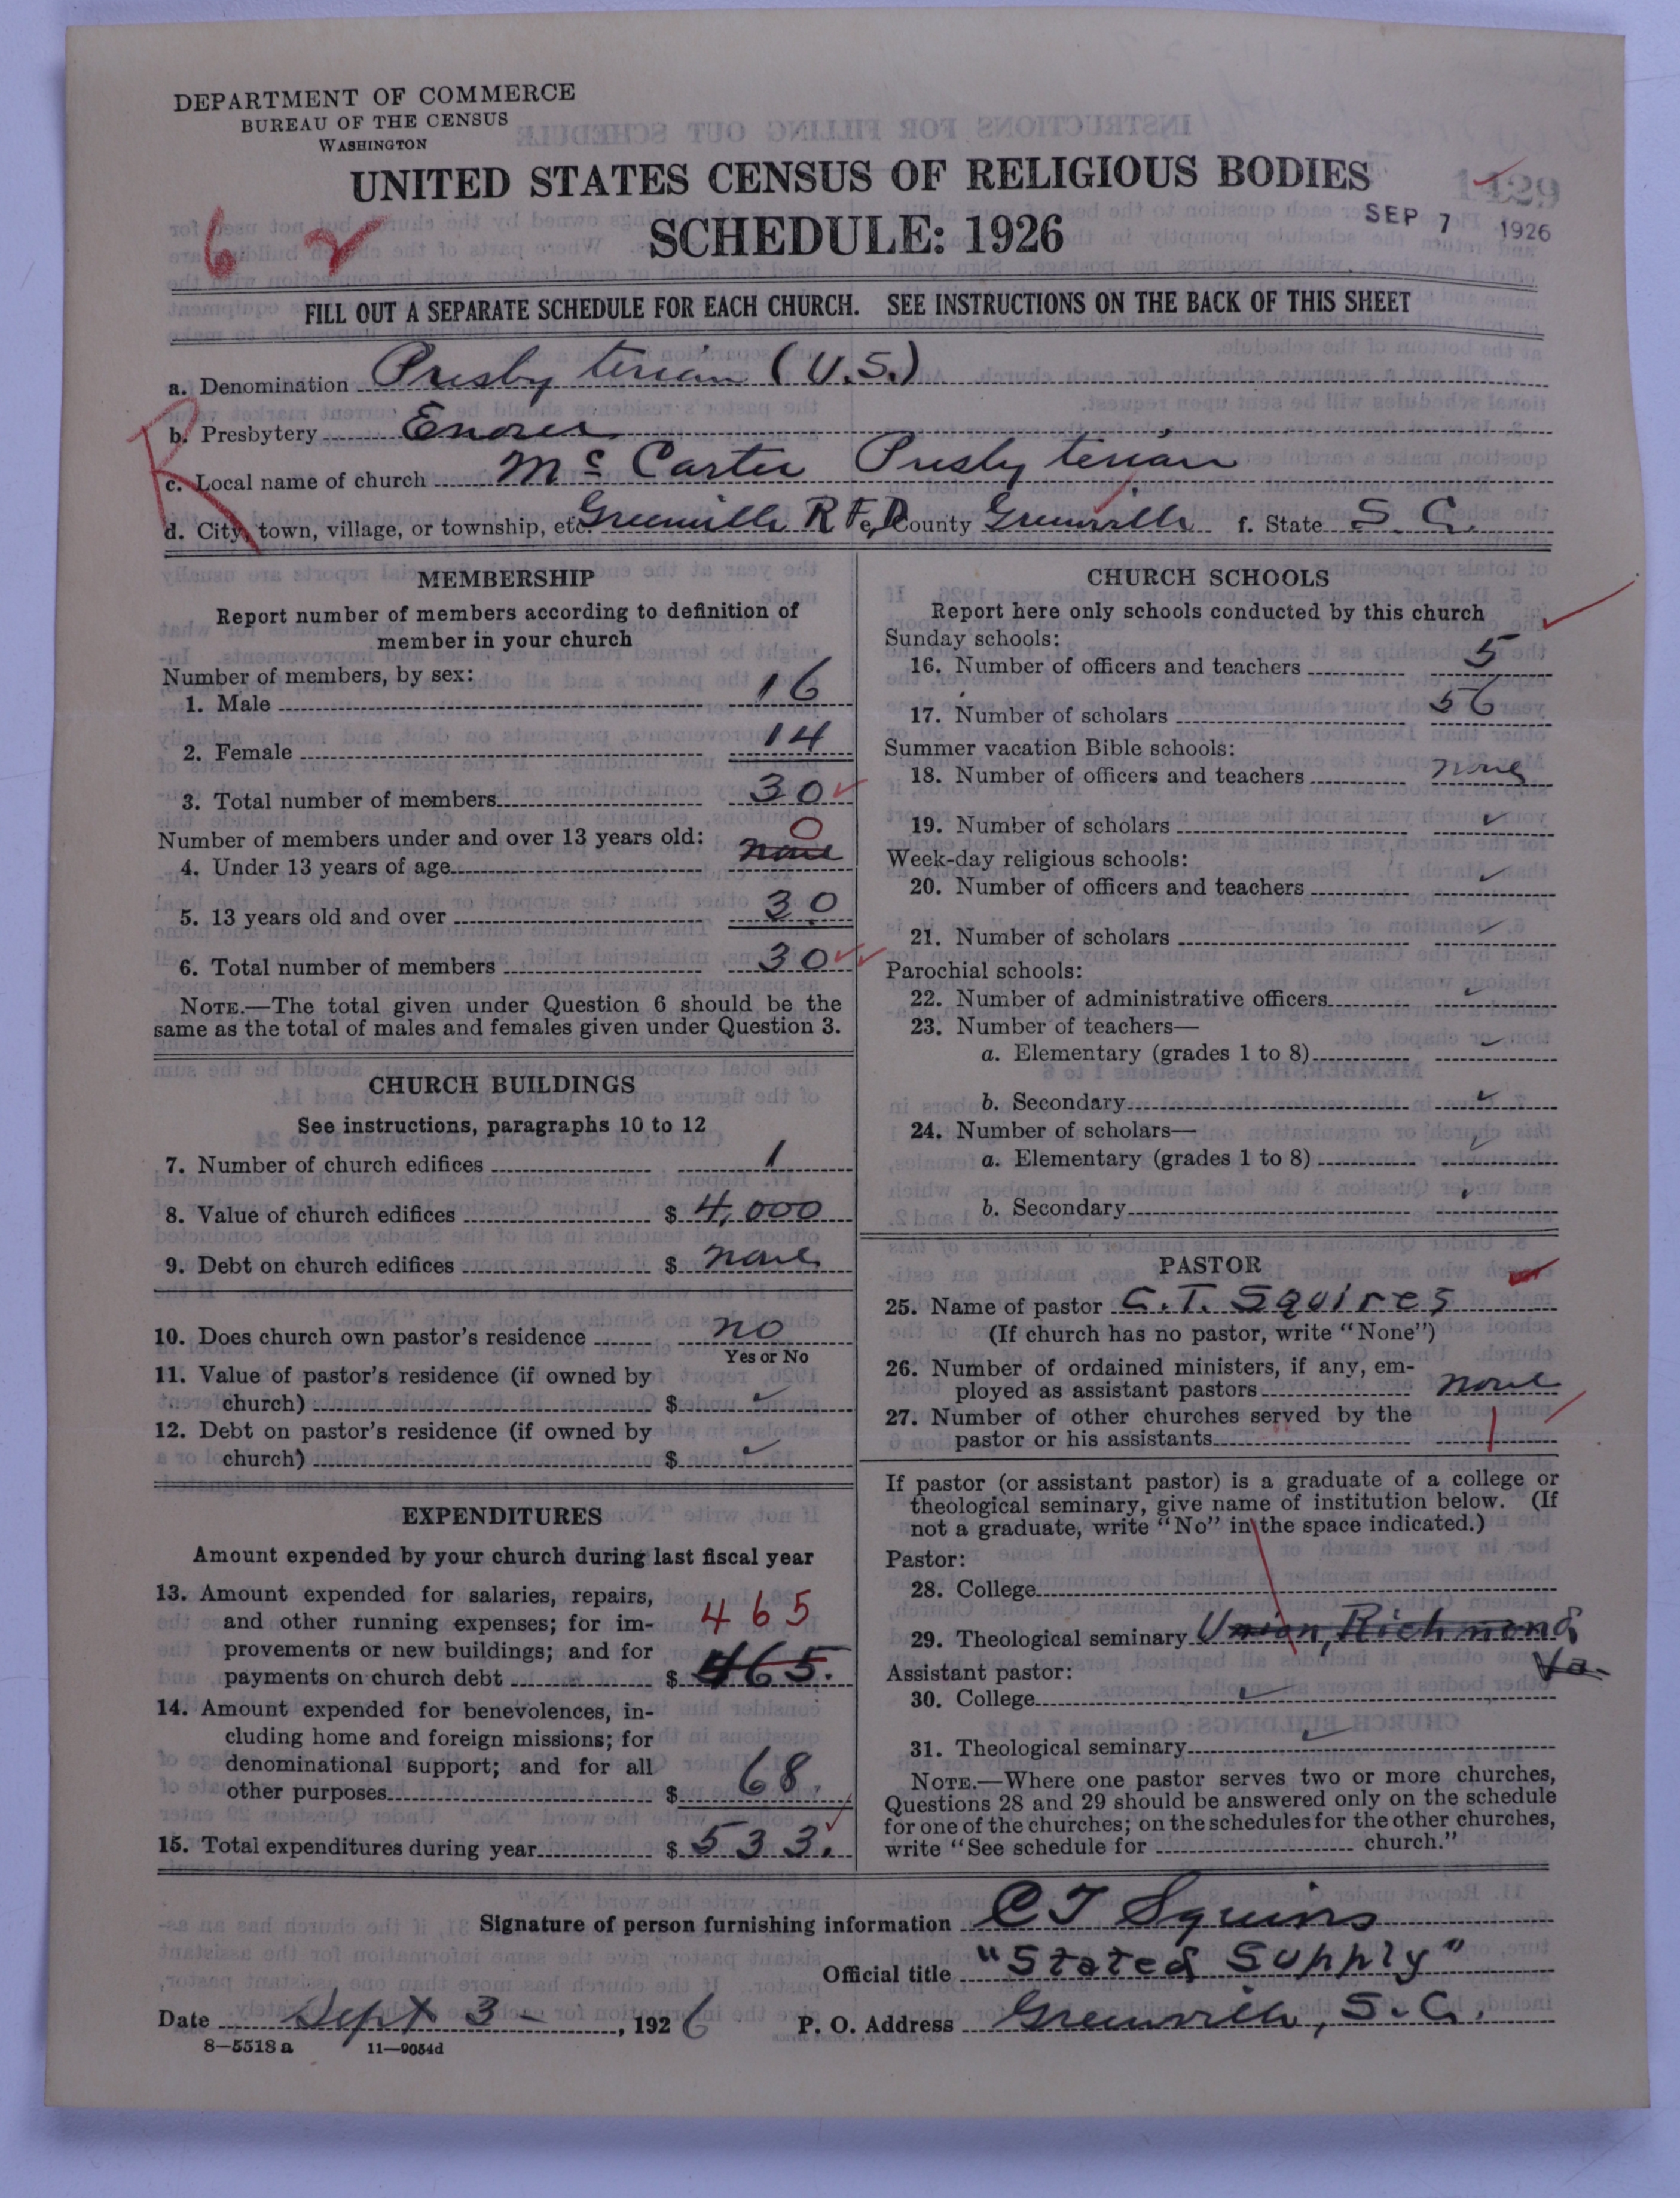 DEPARTMENT OF COMMERCE
BUREAU OF THE CENSUS
WASHINGTON
UNITED STATES CENSUS OF RELIGIOUS BODIES
SCHEDULE: 1926
1429
SEP 7 1926
6
FILL OUT A SEPARATE SCHEDULE FOR EACH CHURCH. SEE INSTRUCTIONS ON THE BACK OF THIS SHEET
a. Denomination Presbyterian (U.S.)
b. Presbytery Enoree
R
c. Local name of church Mc Carter Presbyterian
d. City, town, village, or township, etc. Greenville R F D e. County Greenville f. State S. C.
MEMBERSHIP
Report number of members according to definition of
member in your church
Number of members, by sex:
1. Male 16
2. Female 14
3. Total number of members 30
Number of members under and over 13 years old: 0
4. Under 13 years of age none
5. 13 years old and over 30
6. Total number of members 30
NOTE.—The total given under Question 6 should be the
same as the total of males and females given under Question 3.
CHURCH BUILDINGS
See instructions, paragraphs 10 to 12
7. Number of church edifices 1
8. Value of church edifices $ 4,000
9. Debt on church edifices $ none
10. Does church own pastor's residence no
Yes or No
11. Value of pastor's residence (if owned by
church) $ ✓
12. Debt on pastor's residence (if owned by
church) $ ✓
EXPENDITURES
Amount expended by your church during last fiscal year
13. Amount expended for salaries, repairs,
and other running expenses; for im- 465
provements or new buildings; and for
payments on church debt $ 465.
14. Amount expended for benevolences, in-
cluding home and foreign missions; for
denominational support; and for all
other purposes $ 68.
15. Total expenditures during year $ 533.
CHURCH SCHOOLS
Report here only schools conducted by this church
Sunday schools:
16. Number of officers and teachers 5
17. Number of scholars 56
Summer vacation Bible schools:
18. Number of officers and teachers none
19. Number of scholars ✓
Week-day religious schools:
20. Number of officers and teachers ✓
21. Number of scholars ✓
Parochial schools:
22. Number of administrative officers ✓
23. Number of teachers—
a. Elementary (grades 1 to 8) ✓
b. Secondary ✓
24. Number of scholars—
a. Elementary (grades 1 to 8) ✓
b. Secondary ✓
PASTOR
25. Name of pastor C. T. Squires
(If church has no pastor, write "None")
26. Number of ordained ministers, if any, em-
ployed as assistant pastors none
27. Number of other churches served by the
pastor or his assistants 1
If pastor (or assistant pastor) is a graduate of a college or
theological seminary, give name of institution below. (If
not a graduate, write "No" in the space indicated.)
Pastor:
28. College
29. Theological seminary Union, Richmond
Va.
Assistant pastor:
30. College ✓
31. Theological seminary ✓
NOTE.—Where one pastor serves two or more churches,
Questions 28 and 29 should be answered only on the schedule
for one of the churches; on the schedules for the other churches,
write "See schedule for church."
Signature of person furnishing information C T Squires
Official title "Stated Supply"
Date Sept 3 - , 1926 P. O. Address Greenville, S. C.
8-5518 a 11-9054d